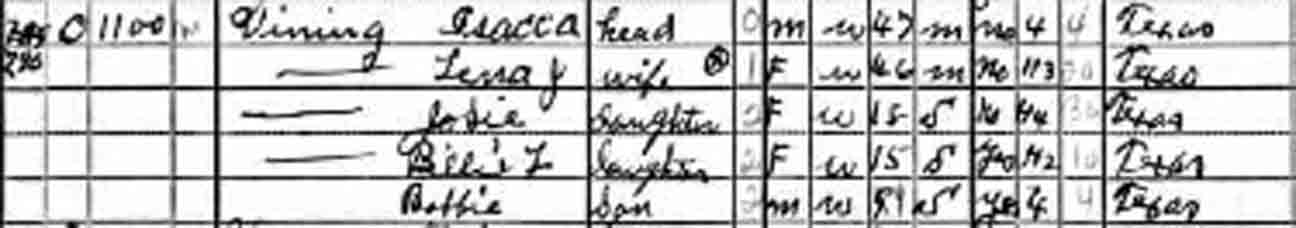 O 1100 Vining Isacca head 0 m w 47 m no 4 4 Texas
— Lena J wife 1 F w 46 m No H3 30 Texas
— Josie daughter 2 F w 18 S No H4 30 Texas
— Billie L daughter 2 F w 15 S Yes H2 10 Texas
Bobbie Son 2 m w S yes 4 4 Texas